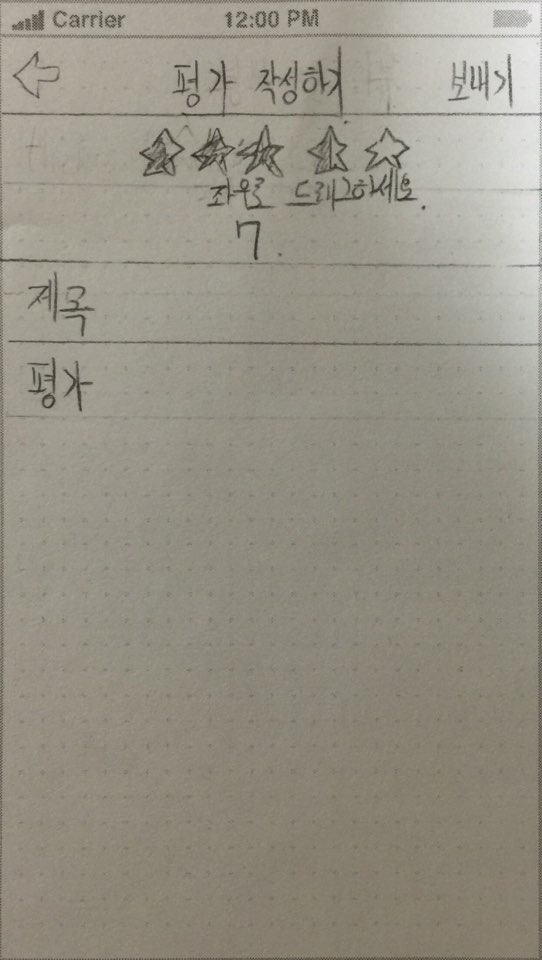 Carrier 12:00 PM
평가 작성하기 보내기
좌우로 드래그하세요.
7.
제목
평가